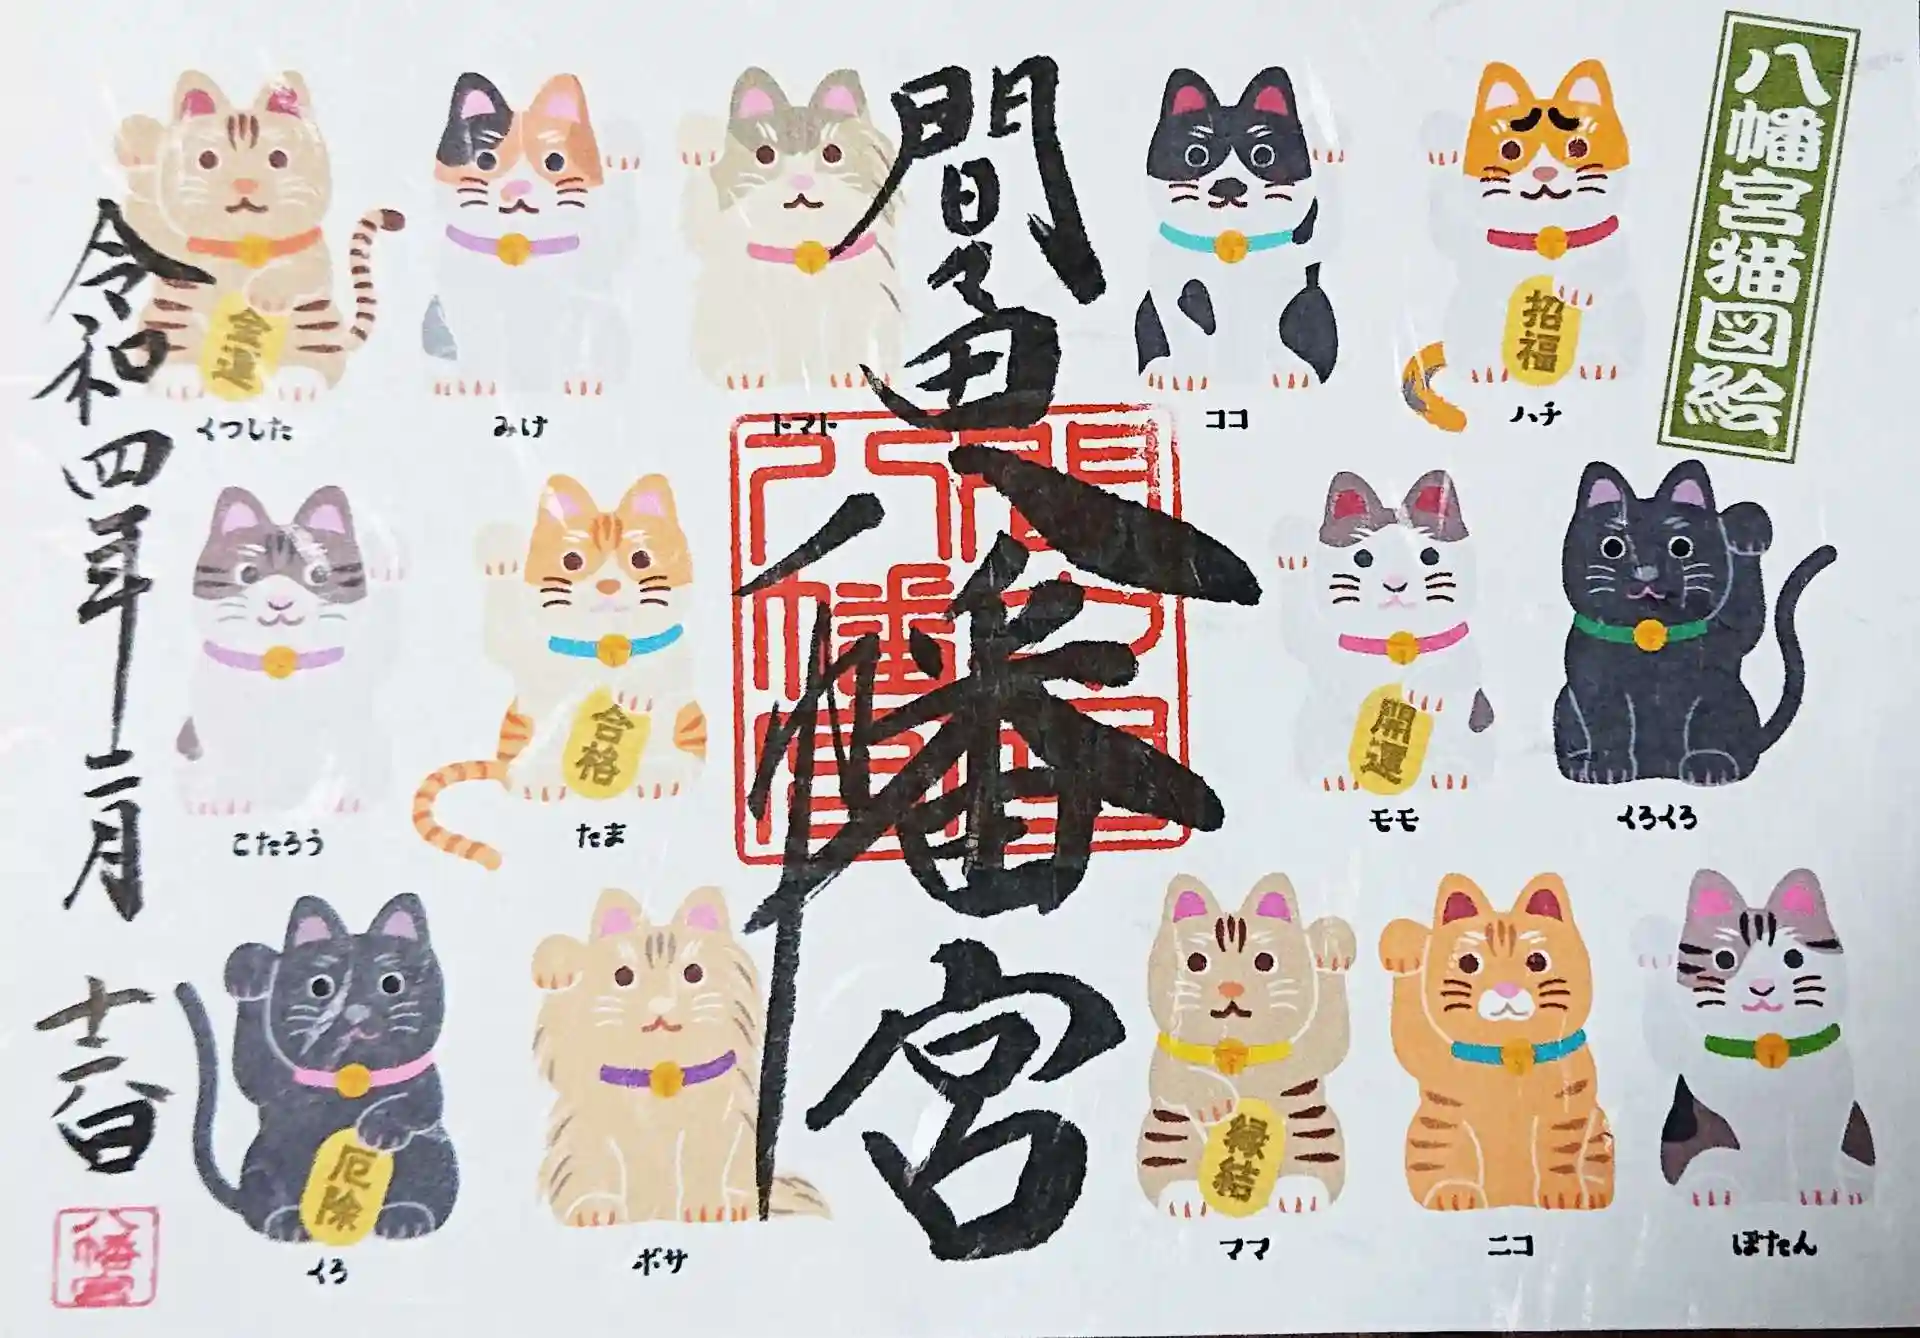 八幡宮猫図絵
間々田八幡宮
間々田
八幡宮
招福
ハチ
ココ
トマト
みけ
金運
くつした
いろいろ
開運
モモ
合格
たま
こたろう
ぼたん
ニコ
縁結
ママ
ボサ
厄除
いろ
令和四年二月
八幡宮